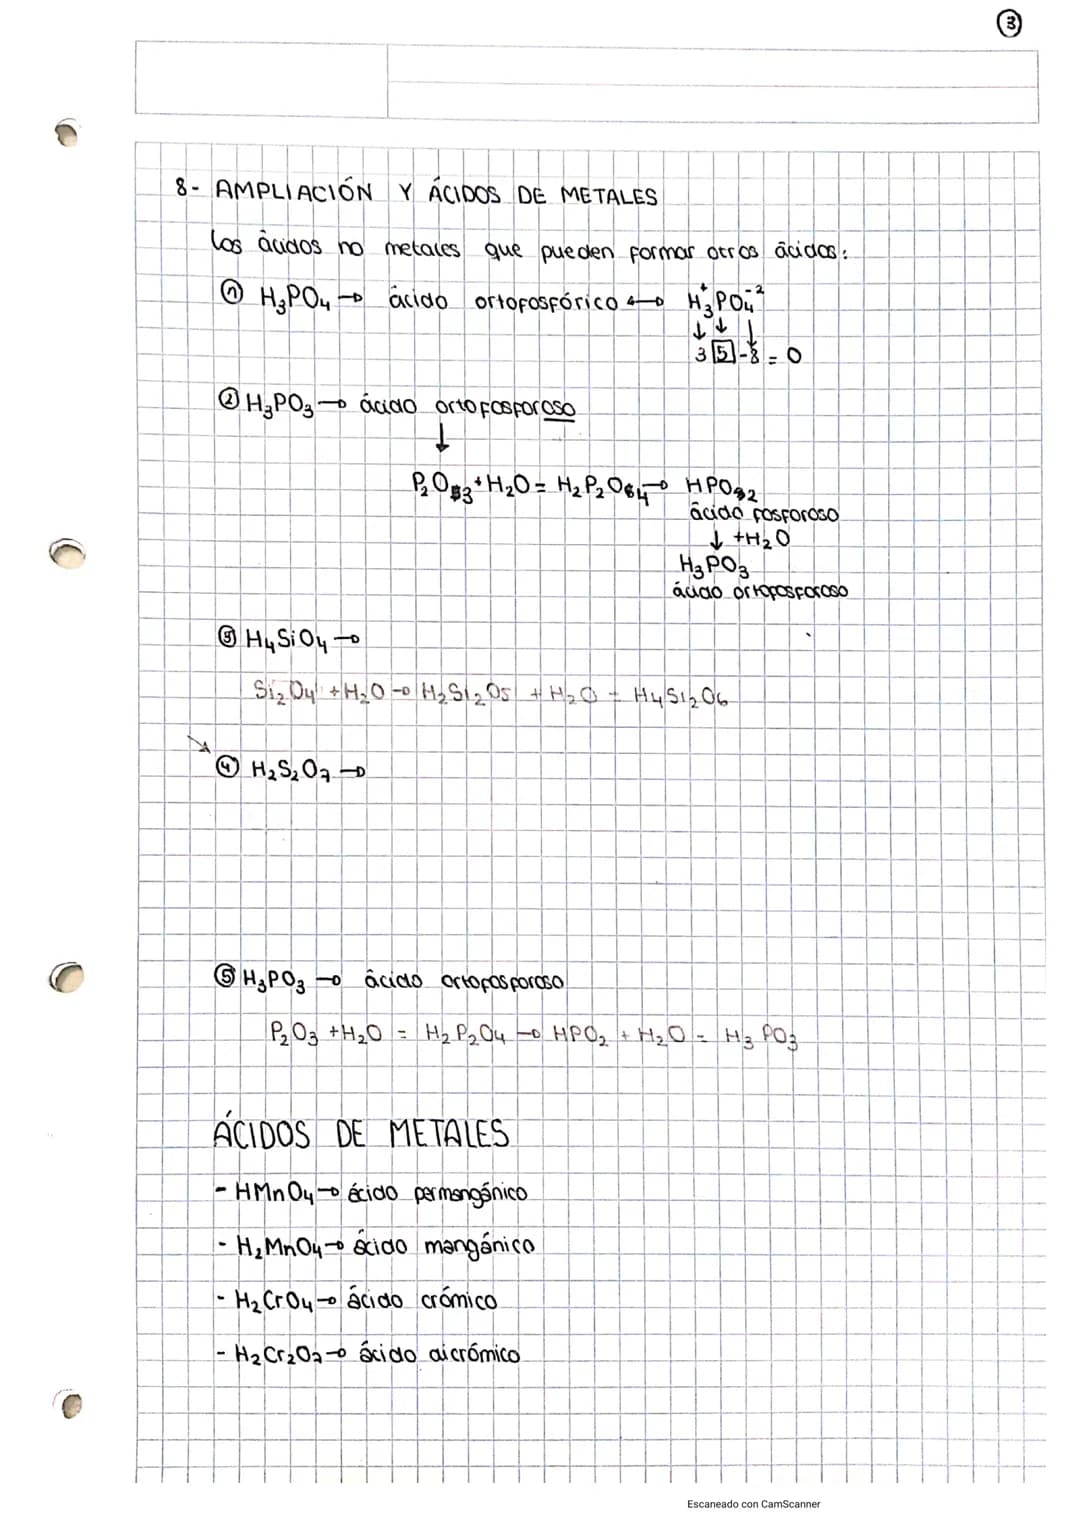 ③
8- AMPLIACIÓN Y ÁCIDOS DE METALES
Los ácidos no metales que pueden formar otros ácidos:
① H₃PO₄ → ácido ortofosfórico ↔ H₃⁺PO₄⁻²
↓ ↓ ↓
3 5 -8 = 0
② H₃PO₃ → ácido ortofosforoso
↓
P₂O₃ + H₂O = H₂P₂O₄ → HPO₂
ácido fosforoso
↓ +H₂O
H₃PO₃
ácido ortofosforoso
③ H₄SiO₄ →
Si₂O₄ + H₂O → H₂Si₂O₅ + H₂O = H₄Si₂O₆
④ H₂S₂O₇ →
⑤ H₃PO₃ → ácido ortofosforoso
P₂O₃ + H₂O = H₂P₂O₄ → HPO₂ + H₂O = H₃PO₃
ÁCIDOS DE METALES
- HMnO₄ → ácido permangánico
- H₂MnO₄ → ácido mangánico
- H₂CrO₄ → ácido crómico
- H₂Cr₂O₇ → ácido dicrómico
Escaneado con CamScanner